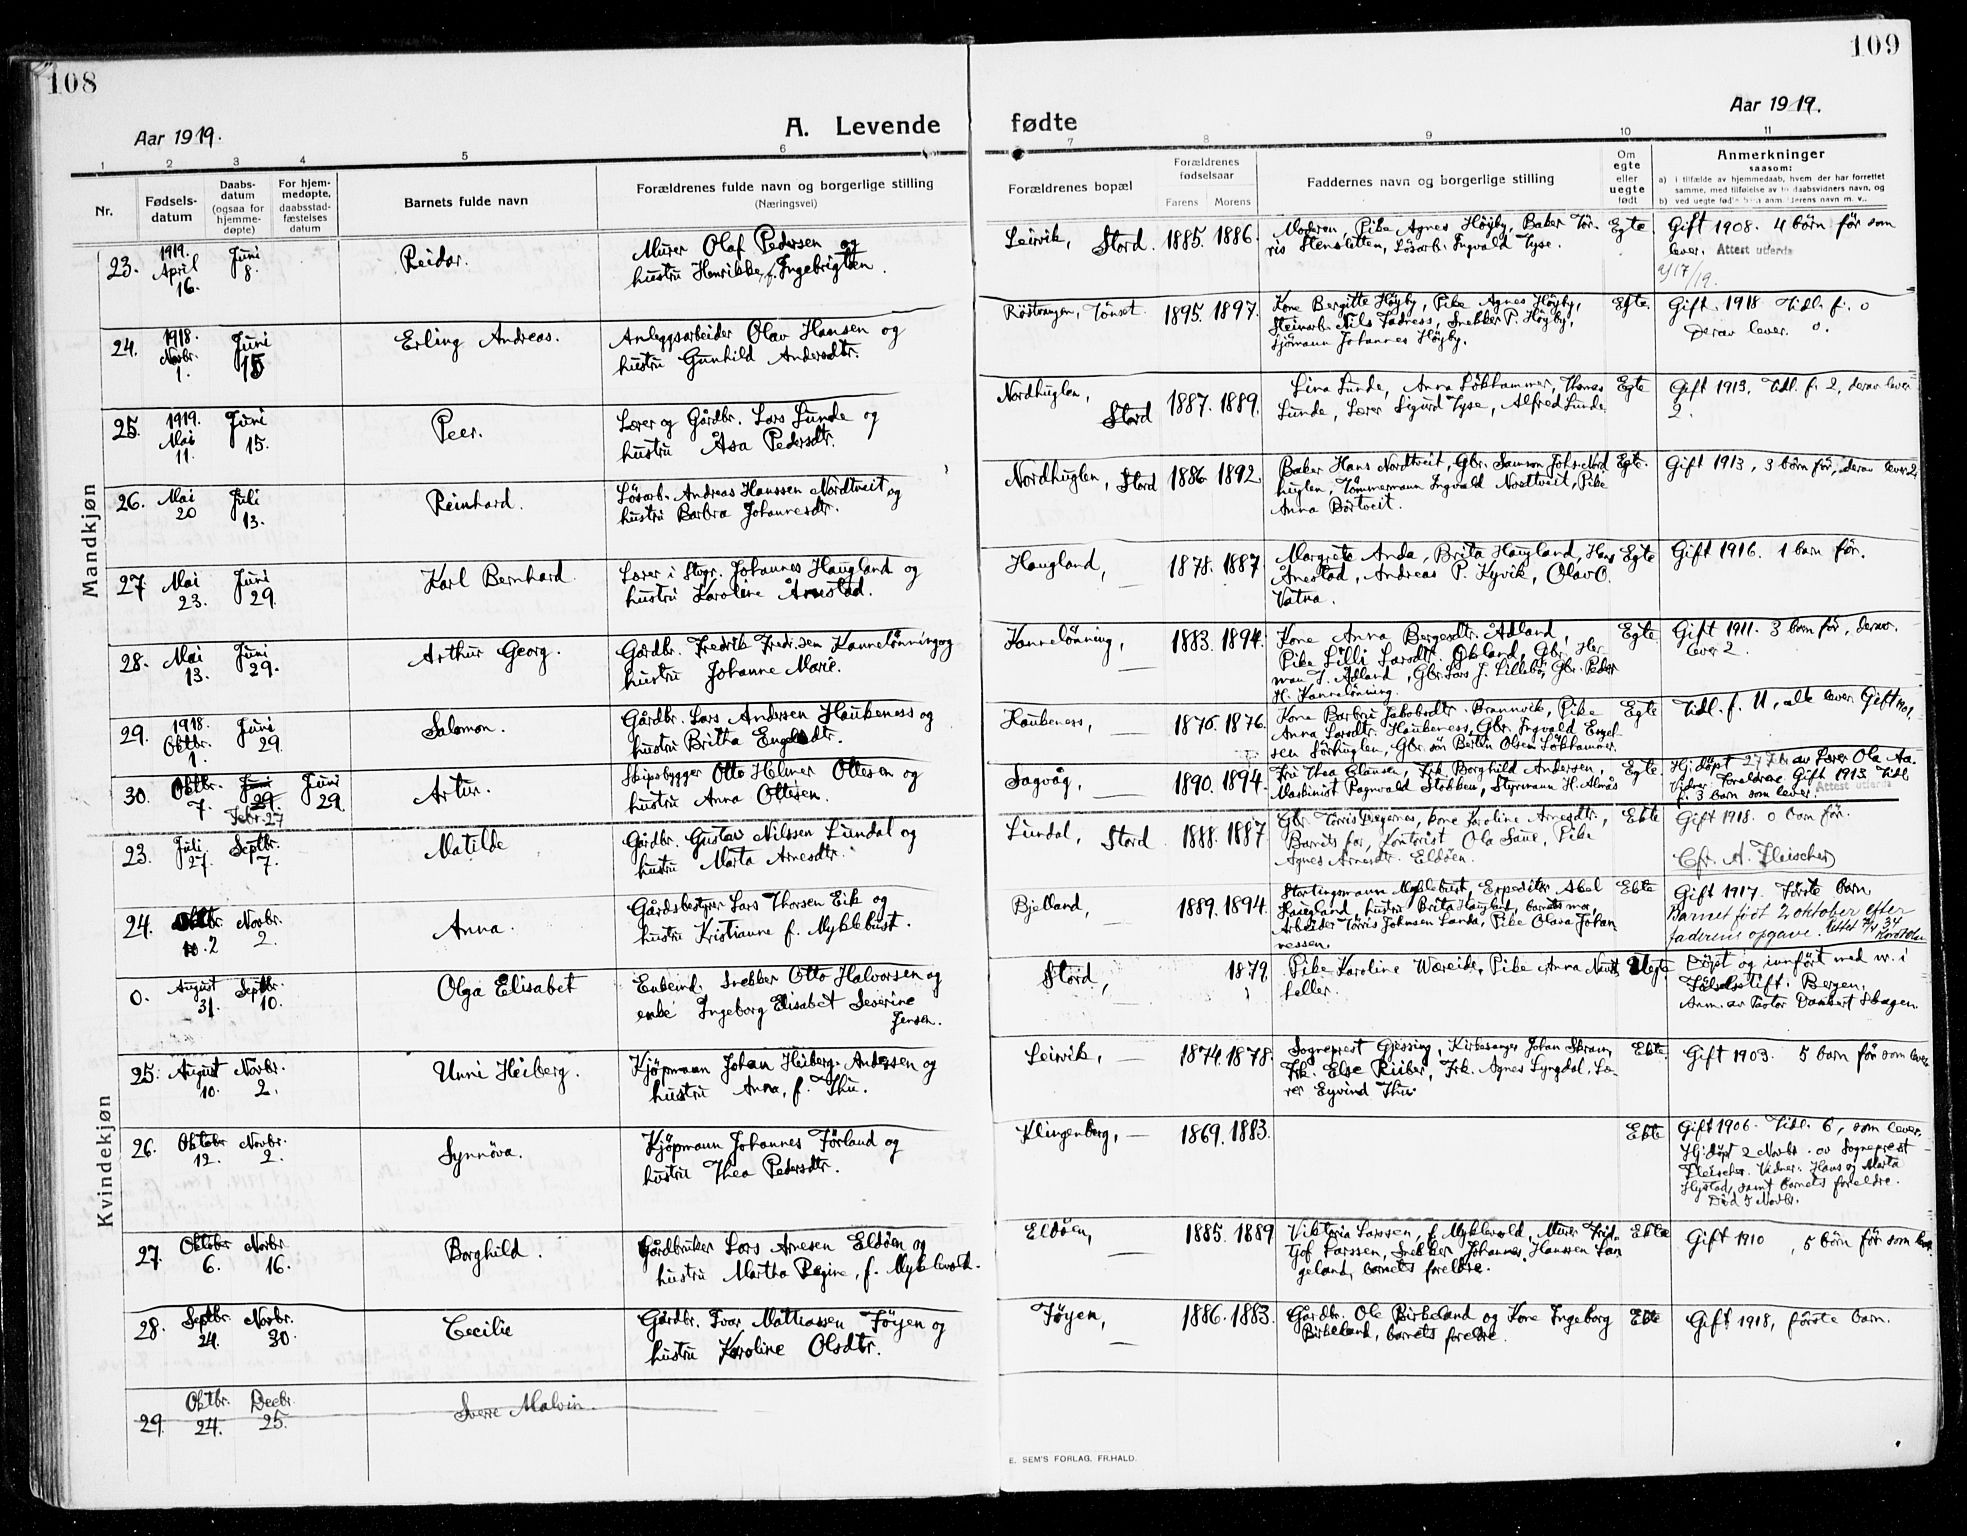 108
109
Aar 1919.
A. Levende fødte
Aar 1919.
1 2 3 4 5 6 7 8 9 10 11
Nr.
Fødsels-
datum
Daabs-
datum
(ogsaa for
hjemme-
døpte)
For hjem-
medøpte,
daabsstad-
fæstelses
datum
Barnets fulde navn
Forældrenes fulde navn og borgerlige stilling
(Næringsvei)
Forældrenes bopæl
Forældrenes
fødselsaar
Farens Morens
Faddernes navn og borgerlige stilling
Om
egte
eller
uegte
født
Anmerkninger
saasom:
a) i tilfælde av hjemmedaab, hvem der har forrettet
samme, med tilføielse av to daabsvidners navn, og
b) ved uegte fødte barn anm. derens navn m. v..
Mandkjøn
23. 1919. April 16. Juni 8. Reidar.
Murer Olaf Pedersen og
hustru Henrikke, f. Ingebrigtsen.
Leirvik, Stord. 1885. 1886.
Moderen, Pike Agnes Höyby, Baker Tör-
ris Stensletten, Lösarb. Ingvald Tyse.
Egte
Gift 1908. 4 börn för som
lever. Attest utferdt
9/17/19.
24. 1918. Novbr. 1. Juni 15 Erling Andreas.
Anleggsarbeider Olav Hansen og
hustru Gunhild Andersdtr.
Röstvangen, Tönset. 1895. 1897.
Kone Bergitte Höyby, Pike Agnes Höyby,
Steinarb. Nils Tadness, Snekker P. Höyby,
Sjömann Johannes Höyby.
Egte.
Gift. 1918 Tidl. f. 0
Derav lever. 0.
25. 1919. Mai 11. Juni 15. Peer.
Lærer og Gårdbr. Lars Lunde og
hustru Åsa Pedersdtr.
Nordhuglen, Stord 1887. 1889.
Lina Lunde, Anna Lökhammer, Thomas
Lunde, Lærer Sigurd Tyse, Alfred Lunde.
Egte
Gift 1913. Tidl. f. 2, derav lever
2.
26. Mai 20 Juli 13. Reinhard.
Lösarb. Andreas Hanssen Nordtveit og
hustru Barbra Johannesdtr.
Nordhuglen, Stord 1886 1892
Baker Hans Nordtveit, Gbr. Samson Johs. Nord
huglen, Tömmermann Ingvald Nordtveit, Pike
Anna Börtveit.
Egte.
Gift 1913, 3 börn för, derav lever 2
27 Mai 23. Juni 29. Karl Bernhard.
Lærer i Stvgr. Johannes Haugland og
hustru Karoline Årnestad.
Haugland, — 1878. 1887
Margrete Anda, Brita Haugland, Hans
Ånestad, Andreas P. Kyvik, Olav O.
Vatna.
Egte
Gift 1916. 1 barn för.
28. Mai 13. Juni 29. Arthur Georg.
Gårdbr. Fredrik Fredrsen Kannelönning og
hustru Johanne Marie.
Kannelönning, — 1883. 1894.
Kone Anna Bergesdtr. Ådland,
Pike Lilli Larsdtr. Økland, Gbr. Her
man J. Ådland, Gbr. Lars J. Lillebö, Gbr. Peder
H. Kannelönning.
Egte
Gift 1911. 3 barn för, derav.
lever 2.
29. 1918. Oktbr. 1. Juni 29. Salomon.
Gårdbr. Lars Andersen Haukeness og
hustru Britha Engelsdtr.
Haukeness, — 1876. 1876.
Kone Barbru Jakobsdtr. Brannvik, Pike
Anna Larsdtr. Haukeness, Gbr. Ingvald Engel-
sen Sörhuglen, Gbr. sön Bertin Olsen Lökhammer.
Egte
Tidl. f. 11, alle lever. Gift 1901.
30. Oktbr. 7. Juni 29. Febr. 27 Juni 29. Artur.
Skipsbygger Otto Helmer Ottesen og
hustru Anna Ottesen.
Sagvåg, — 1890. 1894.
Fru Thea Clausen, Frk. Borghild Andersen,
Maskinist Ragnvald Stokken, Styrmann H. Almås
Egte
Hj. döpt 27/2 av Lærer Ola Aa.
Vidner, Foreldrene. Gift 1913. Tidl.
f. 3 barn som lever. Attest utferdt
Kvindekjøn
23. Juli 27. Septbr. 7. Matilde
Gårdbr. Gustav Nilssen Lundal og
hustru Marta Arnesdtr.
Lundal, Stord 1888. 1887
Gbr. Törris Digernes, kone Karoline Arnesdtr.,
Barnets far, Kontorist Ola Saue, Pike
Agnes Arnesdtr. Eldöen.
Ekte
Gift 1918. 0 barn för.
Cfr. A. Fleischer)
24. Oktbr. 2 Novbr. 2. Anna.
Gårdsbestyrer Lars Thorsen Eik og
hustru Kristianne f. Myklebust.
Bjelland, — 1889. 1894.
Stortingsmann Myklebust, Expeditör Abel
Haugland, hustru Brita Haugland, barnets mor,
Arbeider Törris Johnsen Landa, Pike Olava Johan
nessen.
Ekte
Gift 1917. Förste barn.
Barnet födt 2 oktober efter
faderens opgave.
0. August 31. Septbr. 10. Olga Elisabet
Enkemd. Snekker Otto Halvorsen og
enke Ingeborg Elisabet Severine
Jensen.
Stord, — 1879
Pike Karoline Wæreide, Pike Anna Nauts
heller.
Uegte
Döpt og innfört med nr. i
Födselsstift. Bergen.
Anm. av Pastor Dankert Skagen.
25. August 10. Novbr. 2. Unni Heiberg.
Kjöpmann Johan Heiberg Andersen og
hustru Anna, f. Thu.
Leirvik, — 1874. 1878.
Sogneprest Gjessing, Kirkesanger Johan Skram,
Frk. Else Riiber, Frk. Agnes Lyngdal, Læ-
rer Eyvind Thu.
Ekte.
Gift 1903. 5 barn för som lever
26. Oktober 12. Novbr. 2. Synnöva.
Kjöpmann Johannes Förland og
hustru Thea Pedersdtr.
Klingenberg, — 1869. 1883.
Ekte
Gift 1906. Tidl. 6, som lever.
Hj. döpt 2 Novbr. av Sogneprest
Fleischer. Vidner: Hans og Marta
Hystad, samt barnets foreldre.
Död 5 Novbr.
27. Oktober 6. Novbr. 16. Borghild.
Gårdbruker Lars Arnesen Eldöen og
hustru Martha Regine, f. Myklevold.
Eldöen, — 1885. 1889
Viktoria Larssen, f. Myklevold, Murer Frid-
tjof Larssen, Snekker Johannes Hanssen Lan
geland, barnets foreldre.
Ekte
Gift 1910, 5 börn för som lever.
28. Septbr. 24. Novbr. 30. Cecilie
Gårdbr. Ivar Mathiassen Töyen og
hustru Karoline Olsdtr.
Töyen, — 1886. 1883.
Gårdbr. Ole Birkeland og Kone Ingeborg
Birkeland, barnets foreldre.
Ekte
Gift 1918, förste barn.
29. Oktbr. 24. Decbr. 25. Sverre Malvin.
E. SEM'S FORLAG. FR.HALD.